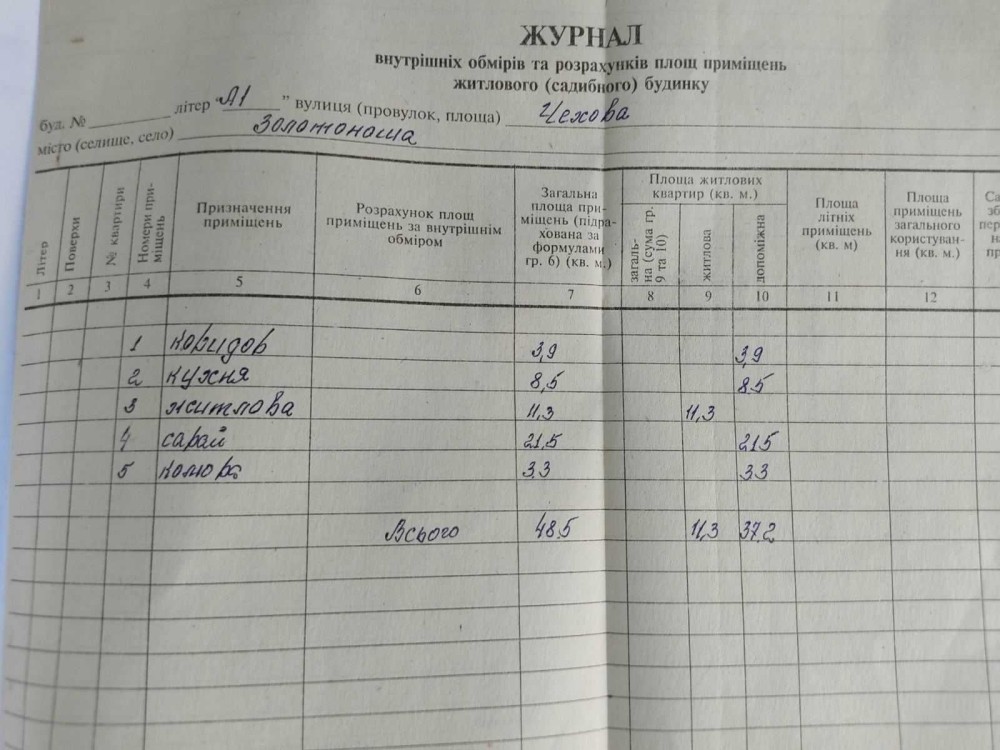 ЖУРНАЛ
внутрішніх обмірів та розрахунків площ приміщень
житлового (садибного) будинку
буд. № літер "А1" вулиця (провулок, площа) Чехова
місто (селище, село) Золотоноша
Літер Поверхи № квартири Номери приміщень Призначення приміщень Розрахунок площ приміщень за внутрішнім обміром Загальна площа приміщень (підрахована за формулами гр. 6) (кв. м.) Площа житлових квартир (кв. м.) загальна (сума гр. 9 та 10) житлова допоміжна Площа літніх приміщень (кв. м) Площа приміщень загального користування (кв. м.)
1 2 3 4 5 6 7 8 9 10 11 12
1 коридор 3,9 3,9
2 кухня 8,5 8.5
3 житлова 11,3 11,3
4 сарай 21,5 21.5
5 комора 3.3 3.3
Всього 48.5 11,3 37.2